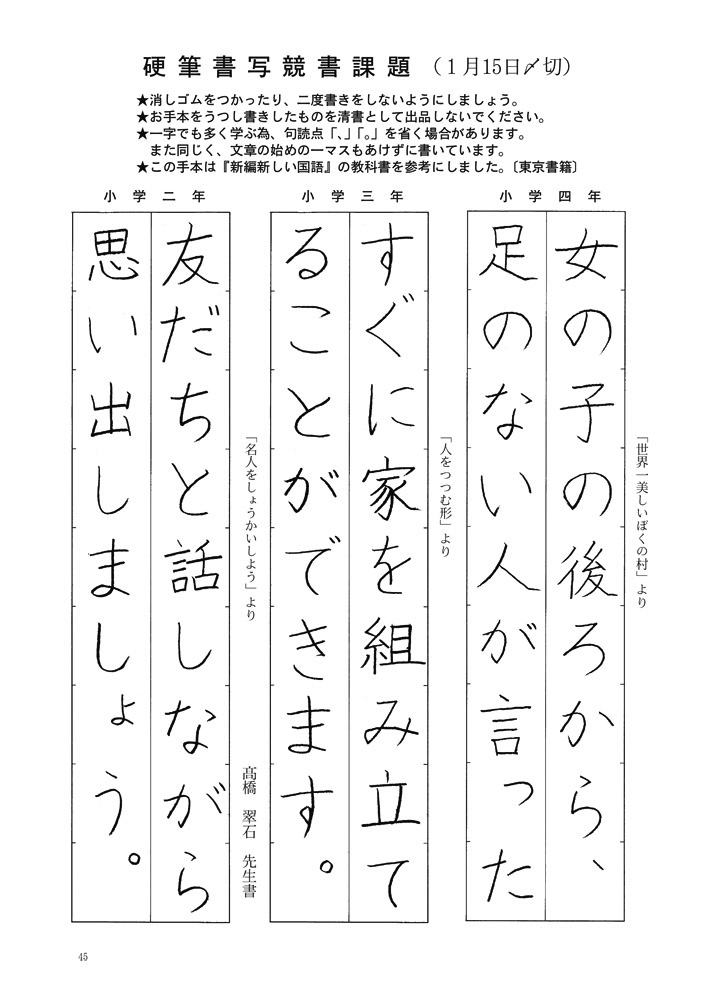 硬筆書写競書課題（１月15日〆切）
★消しゴムをつかったり、二度書きをしないようにしましょう。
★お手本をうつし書きしたものを清書として出品しないでください。
★一字でも多く学ぶ為、句読点「、」「。」を省く場合があります。
また同じく、文章の始めの一マスもあけずに書いています。
★この手本は『新編新しい国語』の教科書を参考にしました。〔東京書籍〕
小学四年
「世界一美しいぼくの村」より
女の子の後ろから、
足のない人が言った
小学三年
「人をつつむ形」より
すぐに家を組み立て
ることができます。
小学二年
「名人をしょうかいしよう」より
友だちと話しながら
思い出しましょう。
髙橋 翠石 先生書
45